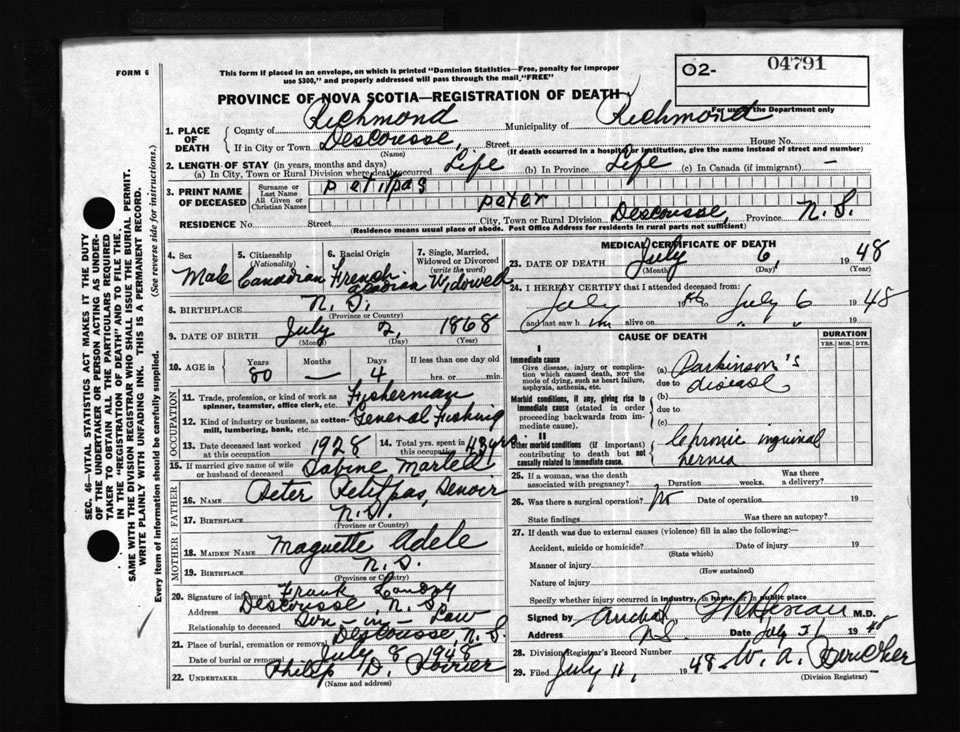 FORM 6
This form if placed in an envelope, on which is printed "Dominion Statistics—Free, penalty for improper
use $300," and properly addressed will pass through the mail "FREE"
O2- 04791
PROVINCE OF NOVA SCOTIA—REGISTRATION OF DEATH
For use of the Department only
1. PLACE OF DEATH
County of Richmond Municipality of Richmond
If in City or Town Descousse, Street House No.
(Name) (If death occurred in a hospital or institution, give name instead of street and number)
2. LENGTH OF STAY (in years, months and days)
(a) In City, Town or Rural Division where death occurred Life (b) In Province Life (c) In Canada (if immigrant) —
3. PRINT NAME OF DECEASED
Surname or Last Name Petitpas
All Given or Christian Names Peter
RESIDENCE No. Street City, Town or Rural Division Descousse, Province N. S.
(Residence means usual place of abode. Post Office Address for residents in rural parts not sufficient)
4. Sex Male
5. Citizenship (Nationality) Canadian
6. Racial Origin French Acadian
7. Single, Married, Widowed or Divorced (write the word) Widowed
8. BIRTHPLACE N. S.
(Province or Country)
9. DATE OF BIRTH July 2, 1868
(Month) (Day) (Year)
10. AGE in Years 80 Months — Days 4 If less than one day old hrs. or min.
OCCUPATION
11. Trade, profession, or kind of work as spinner, teamster, office clerk, etc. Fisherman
12. Kind of industry or business, as cotton-mill, lumbering, bank, etc. General Fishing
13. Date deceased last worked at this occupation 1928
14. Total yrs. spent in 43 yrs.
15. If married give name of wife or husband of deceased Sabine Martell
FATHER
16. NAME Peter Petitpas, Senior
17. BIRTHPLACE N. S.
(Province or Country)
MOTHER
18. MAIDEN NAME Maguette Adele
19. BIRTHPLACE N. S.
(Province or Country)
20. Signature of informant Frank
Address Descousse, N. S.
Relationship to deceased Son-in-Law
21. Place of burial, cremation or removal Descousse, N. S.
Date of burial or removal July 8 1948
22. UNDERTAKER Philip D. Poirier
(Name and address)
MEDICAL CERTIFICATE OF DEATH
23. DATE OF DEATH July 6, 1948
(Month) (Day) (Year)
24. I HEREBY CERTIFY that I attended deceased from:
July 1946 July 6 1948
and last saw him alive on " " 19 "
CAUSE OF DEATH
DURATION
YRS. MOS. DYS.
I
Immediate cause
Give disease, injury or complication which caused death, not the mode of dying, such as heart failure, asphyxia, asthenia, etc.
(a) Parkinson's
due to disease
Morbid conditions, if any, giving rise to immediate cause (stated in order proceeding backwards from immediate cause).
(b)
due to
(c)
II
Other morbid conditions (if important) contributing to death but not causally related to immediate cause.
Chronic inguinal
hernia
25. If a woman, was the death associated with pregnancy? Duration weeks. Was there a delivery?
26. Was there a surgical operation? No Date of operation 19
State findings Was there an autopsy?
27. If death was due to external causes (violence) fill in also the following:—
Accident, suicide or homicide? Date of injury 19
(State which)
Manner of injury
(How sustained)
Nature of injury
Specify whether injury occurred in industry, in home, or in public place
Signed by M.D.
Address N.S. Date July 31 1948
28. Division Registrar's Record Number
29. Filed July 11, 1948 W. A.
(Division Registrar)
SEC. 46—VITAL STATISTICS ACT MAKES IT THE DUTY
OF THE UNDERTAKER OR PERSON ACTING AS UNDER-
TAKER TO OBTAIN ALL THE PARTICULARS REQUIRED
IN THE "REGISTRATION OF DEATH" AND TO FILE THE
SAME WITH THE DIVISION REGISTRAR WHO SHALL ISSUE THE BURIAL PERMIT.
WRITE PLAINLY WITH UNFADING INK. THIS IS A PERMANENT RECORD.
Every item of information should be carefully supplied. (See reverse side for instructions.)